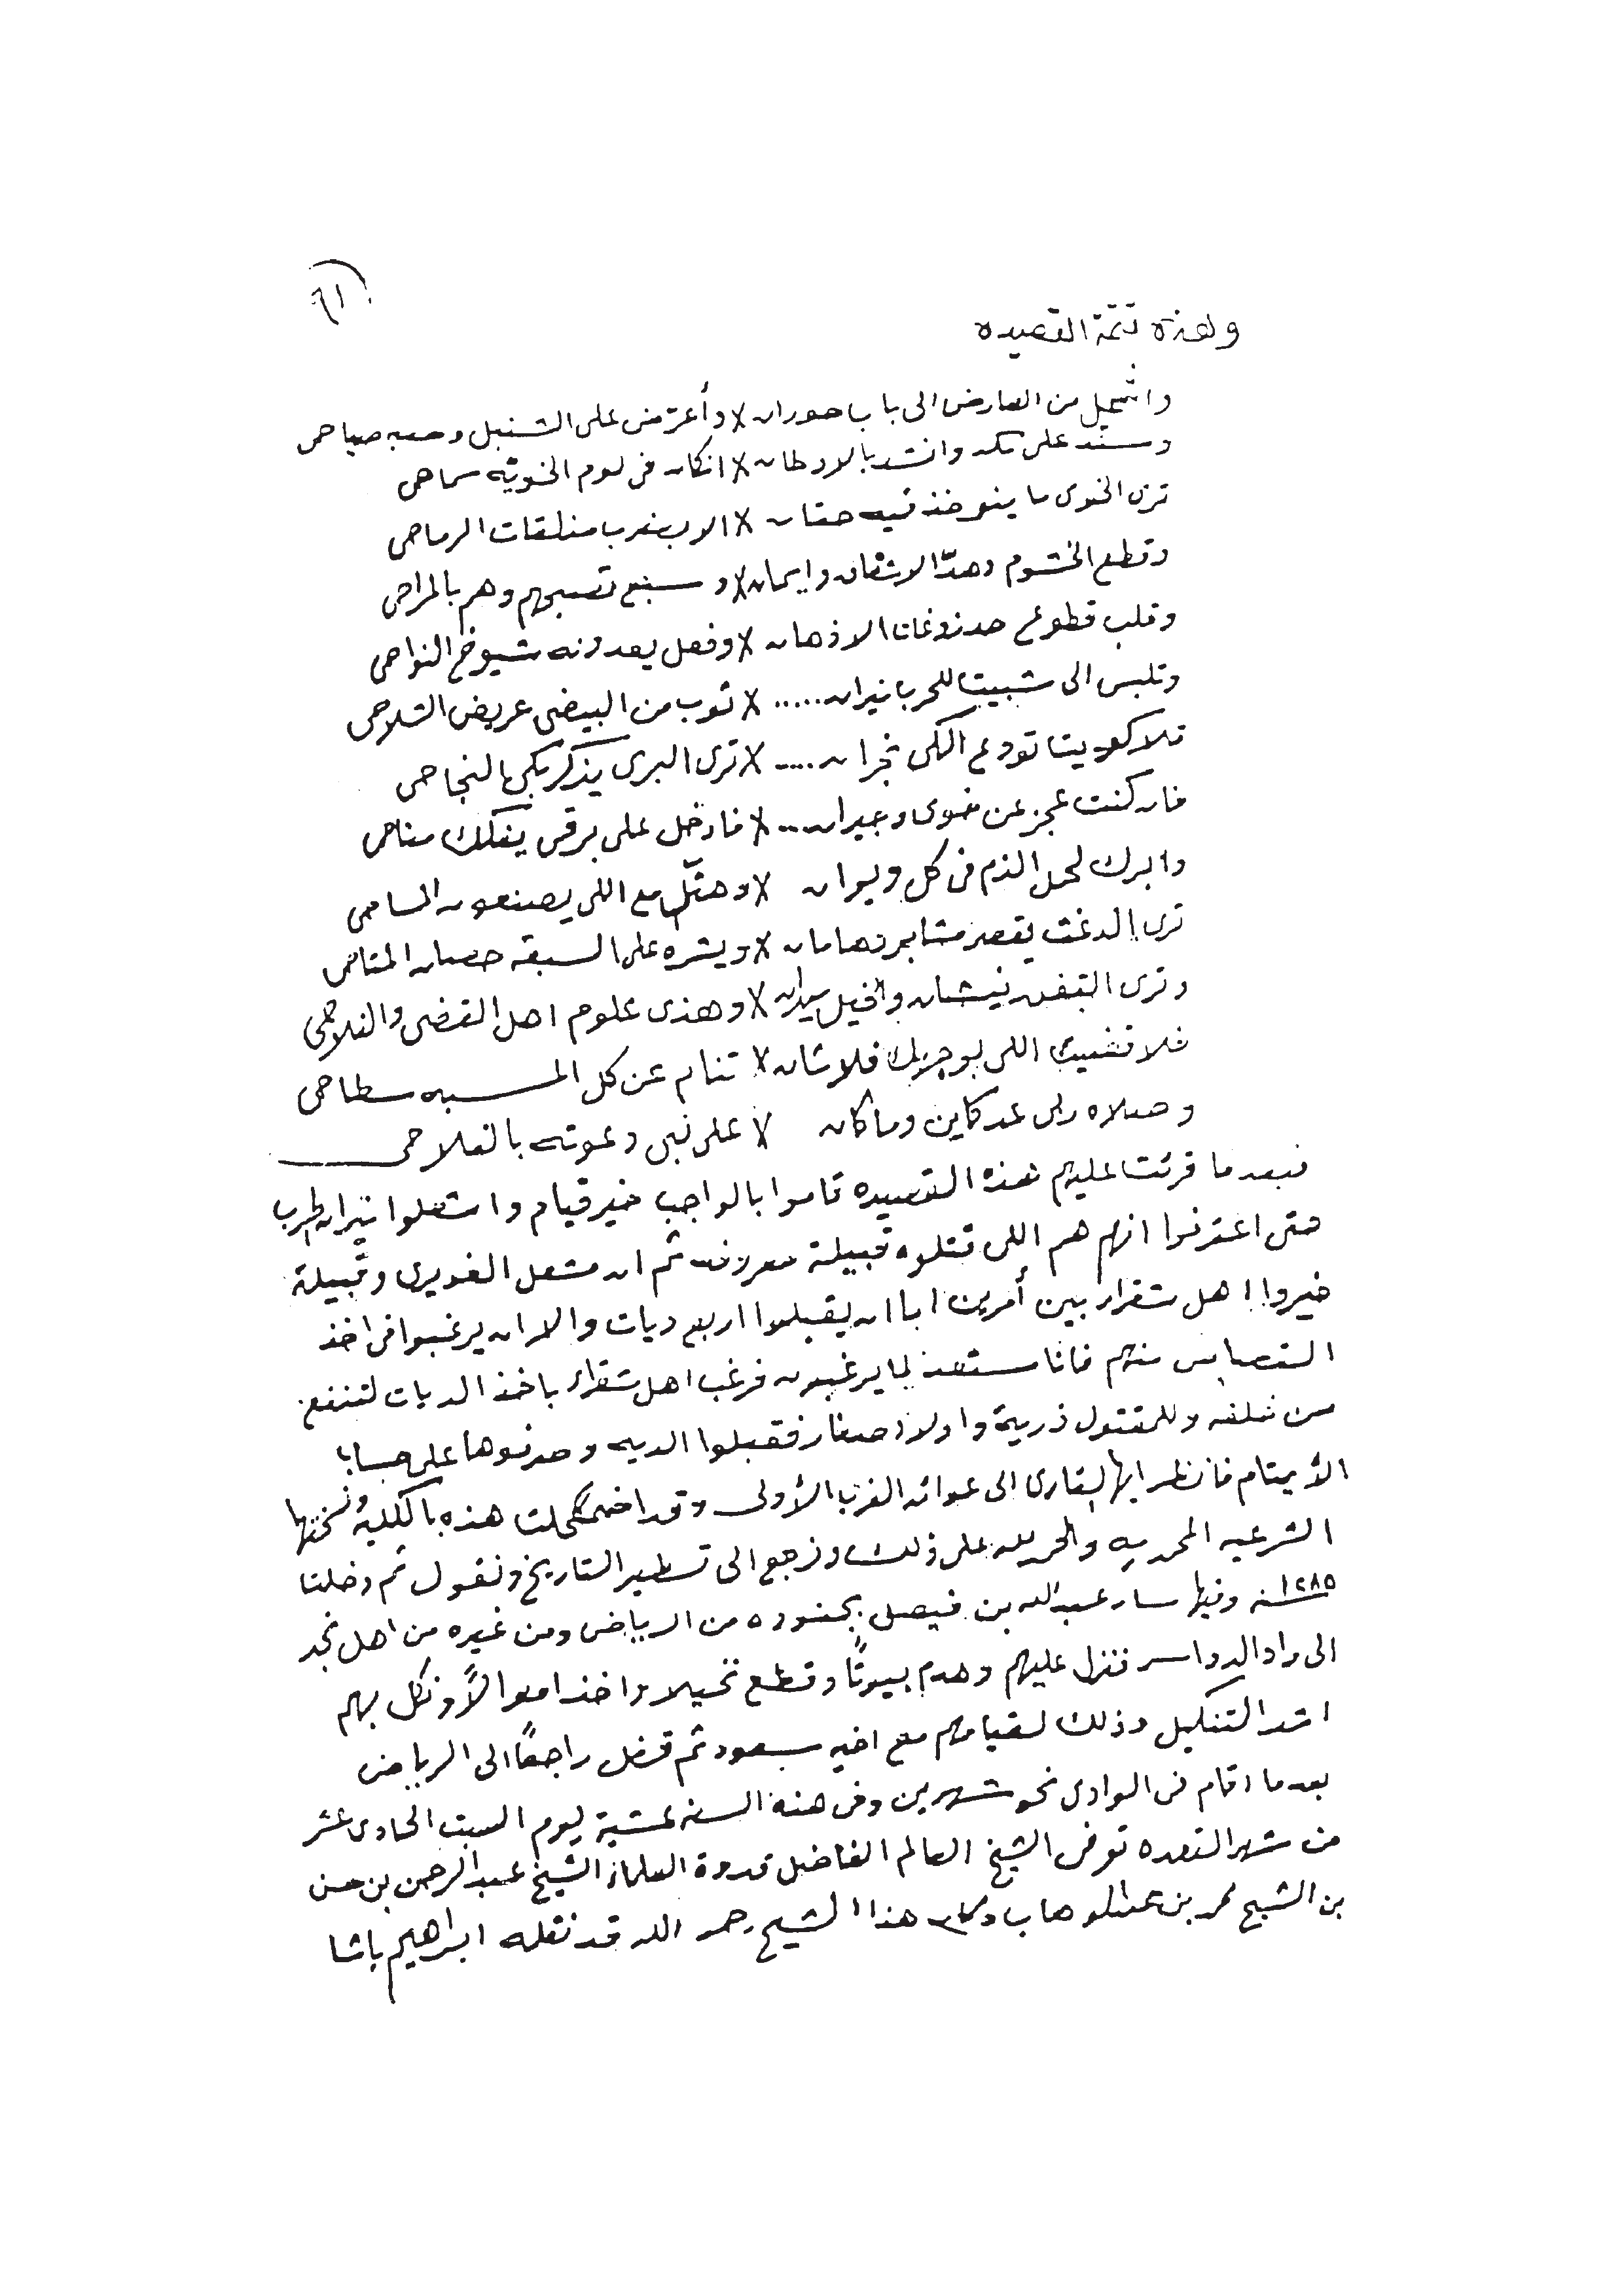 ٦١
وهذه تتمة القصيده
واشمل من العارض الى باب حوران × وأعرض على الشنبل وحسه صياحى
وسند على مكه وانشد بالاوطان × انكان فى لوم الخويّه سماحى
ترى الخوى ما ينوخذ فيه حقان × الا بضرب مذلقات الرماحى
وقطع الخشوم وهدّ الاشفان وايمان × و سبع تصبحهم وهم بالمراحى
وقلب قطوع حد زوغات الاذهان × وفعل يعدونه شيوخ النواحى
وتلبس الى شبيت للحرب نيران ..... × ثوب من البيضى عريض الشلاحى
تلا كويت تودع الكى نجران .... × ترى البرى يذكر بكى النجاحى
فان كنت عجز عن خوى وجيران ... × فادخل على برقى يفكك مناحى
وابرك لحمل الذم فى كل ديوان × وهتّل مع اللى يصنعون المساحى
ترى الدغث يقصر مشابر زهامان × ويشره على السبقه حصان المتاحى
وترى التفق نيشان والخيل ميدان × وهذى علوم اهل القضى والفلاحى
فلا قضيت اللى بوجهك فلا شان × تنام عن كل المسبه سطاحى
وصلاه ربى عد كاين وما كان × على نبى دعوته بالفلاحى
فبعد ما قرئت عليهم هذه القصيده قاموا بالواجب خير قيام واشعلوا نيران الحرب
حتى اعترفوا انهم هم اللى قتلوه قبيلة معروف ثم ان مشعل الغويرى وقبيلة
خيروا اهل شقراء بين أمرين اما ان يقبلوا اربع ديات والا ان يرغبوا فى اخذ
القصاص منهم فانا مستعد لما يرغبون فرغب اهل شقراء باخذ الديات لتنفع
من خلفه وللمقتول ذرية واولاد صغار فقبلوا الديه وصرفوها على حساب
الأيتام فانظر ايها القارى الى عوائد العرب الأولى وقد اضمحلت هذه بالكلية ونسختها
الشرعيه المحمديه والحمد لله على ذلك ونرجع الى تسطير التاريخ ونقول ثم دخلت
سنه ١٢٨٥ وفيها سار عبدالله بن فيصل بجنوده من الرياض ومن غيره من اهل نجد
الى واد الدواسر فنزل عليهم وهدم بيوتًا وقطع نخيلا واخذ اموالاً ونكل بهم
اشد التنكيل وذلك لقيامهم مع اخيه سعود ثم قفل راجعًا الى الرياض
بعد ما اقام فى الوادى نحو شهرين وفى هذه السنه عشية يوم السبت الحادى عشر
من شهر القعده توفى الشيخ العالم الفاضل قدوة العلماء الشيخ عبدالرحمن بن حسن
بن الشيخ محمد بن عبدالوهاب وكان هذا الشيخ رحمه الله قد نقله ابراهيم باشا